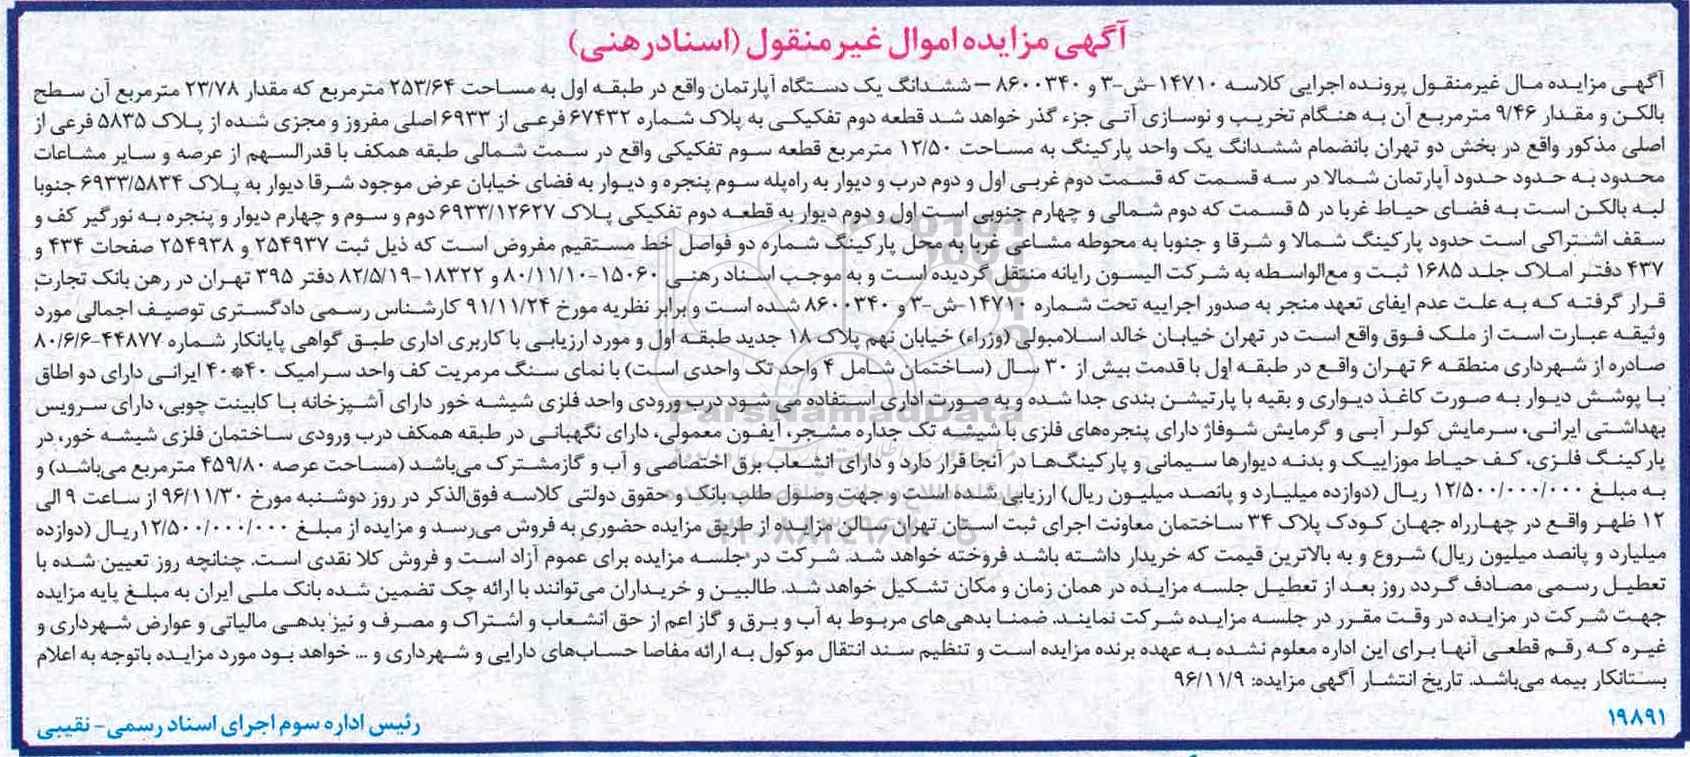 آگهی مزایده اموال غیرمنقول (اسناد رهنی)
آگهی مزایده مال غیرمنقول پرونده اجرایی کلاسه ۱۴۷۱۰-ش-۳ و ۸۶۰۰۳۴۰ – ششدانگ یک دستگاه آپارتمان واقع در طبقه اول به مساحت ۲۵۳/۶۴ مترمربع که مقدار ۲۳/۷۸ مترمربع آن سطح
بالکن و مقدار ۹/۴۶ مترمربع آن به هنگام تخریب و نوسازی آتی جزء گذر خواهد شد قطعه دوم تفکیکی به پلاک شماره ۶۷۴۳۲ فرعی از ۶۹۳۳ اصلی مفروز و مجزی شده از پلاک ۵۸۳۵ فرعی از
اصلی مذکور واقع در بخش دو تهران بانضمام ششدانگ یک واحد پارکینگ به مساحت ۱۲/۵۰ مترمربع قطعه سوم تفکیکی واقع در سمت شمالی طبقه همکف با قدرالسهم از عرصه و سایر مشاعات
محدود به حدود حدود آپارتمان شمالا در سه قسمت که قسمت دوم غربی اول و دوم درب و دیوار به راه‌پله سوم پنجره و دیوار به فضای خیابان عرض موجود شرقا دیوار به پلاک ۶۹۳۳/۵۸۳۴ جنوبا
لبه بالکن است به فضای حیاط غربا در ۵ قسمت که دوم شمالی و چهارم جنوبی است اول و دوم دیوار به قطعه دوم تفکیکی پلاک ۶۹۳۳/۱۲۶۲۷ دوم و سوم و چهارم دیوار و پنجره به نورگیر کف و
سقف اشتراکی است حدود پارکینگ شمالا و شرقا و جنوبا به محوطه مشاعی غربا به محل پارکینگ شماره دو فواصل خط مستقیم مفروض است که ذیل ثبت ۲۵۴۹۳۷ و ۲۵۴۹۳۸ صفحات ۴۳۴ و
۴۳۷ دفتر املاک جلد ۱۶۸۵ ثبت و مع‌الواسطه به شرکت الیسون رایانه منتقل گردیده است و به موجب اسناد رهنی ۱۵۰۶۰-۸۰/۱۱/۱۰ و ۱۸۳۲۲-۸۲/۵/۱۹ دفتر ۳۹۵ تهران در رهن بانک تجارت
قرار گرفته که به علت عدم ایفای تعهد منجر به صدور اجراییه تحت شماره ۱۴۷۱۰-ش-۳ و ۸۶۰۰۳۴۰ شده است و برابر نظریه مورخ ۹۱/۱۱/۲۴ کارشناس رسمی دادگستری توصیف اجمالی مورد
وثیقه عبارت است از ملک فوق واقع است در تهران خیابان خالد اسلامبولی (وزراء) خیابان نهم پلاک ۱۸ جدید طبقه اول و مورد ارزیابی با کاربری اداری طبق گواهی پایانکار شماره ۴۴۸۷۷-۸۰/۶/۶
صادره از شهرداری منطقه ۶ تهران واقع در طبقه اول با قدمت بیش از ۳۰ سال (ساختمان شامل ۴ واحد تک واحدی است) با نمای سنگ مرمریت کف واحد سرامیک ۴۰*۴۰ ایرانی دارای دو اطاق
با پوشش دیوار به صورت کاغذ دیواری و بقیه با پارتیشن بندی جدا شده و به صورت اداری استفاده می شود درب ورودی واحد فلزی شیشه خور دارای آشپزخانه با کابینت چوبی، دارای سرویس
بهداشتی ایرانی، سرمایش کولر آبی و گرمایش شوفاژ دارای پنجره‌های فلزی با شیشه تک جداره مشجر، آیفون معمولی، دارای نگهبانی در طبقه همکف درب ورودی ساختمان فلزی شیشه خور، در
پارکینگ فلزی، کف حیاط موزاییک و بدنه دیوارها سیمانی و پارکینگ‌ها در آنجا قرار دارد و دارای انشعاب برق اختصاصی و آب و گاز مشترک می‌باشد (مساحت عرصه ۴۵۹/۸۰ مترمربع می‌باشد) و
به مبلغ ۱۲/۵۰۰/۰۰۰/۰۰۰ ریال (دوازده میلیارد و پانصد میلیون ریال) ارزیابی شده است و جهت وصول طلب بانک و حقوق دولتی کلاسه فوق‌الذکر در روز دوشنبه مورخ ۹۶/۱۱/۳۰ از ساعت ۹ الی
۱۲ ظهر واقع در چهارراه جهان کودک پلاک ۳۴ ساختمان معاونت اجرای ثبت استان تهران سالن مزایده از طریق مزایده حضوری به فروش می‌رسد و مزایده از مبلغ ۱۲/۵۰۰/۰۰۰/۰۰۰ ریال (دوازده
میلیارد و پانصد میلیون ریال) شروع و به بالاترین قیمت که خریدار داشته باشد فروخته خواهد شد. شرکت در جلسه مزایده برای عموم آزاد است و فروش کلا نقدی است. چنانچه روز تعیین شده با
تعطیل رسمی مصادف گردد روز بعد از تعطیل جلسه مزایده در همان زمان و مکان تشکیل خواهد شد. طالبین و خریداران می‌توانند با ارائه چک تضمین شده بانک ملی ایران به مبلغ پایه مزایده
جهت شرکت در مزایده در وقت مقرر در جلسه مزایده شرکت نمایند. ضمنا بدهی‌های مربوط به آب و برق و گاز اعم از حق انشعاب و اشتراک و مصرف و نیز بدهی مالیاتی و عوارض شهرداری و
غیره که رقم قطعی آنها برای این اداره معلوم نشده به عهده برنده مزایده است و تنظیم سند انتقال موکول به ارائه مفاصا حساب‌های دارایی و شهرداری و ... خواهد بود مورد مزایده باتوجه به اعلام
بستانکار بیمه می‌باشد. تاریخ انتشار آگهی مزایده: ۹۶/۱۱/۹
۱۹۸۹۱
رئیس اداره سوم اجرای اسناد رسمی - نقیبی
ParsNamadData